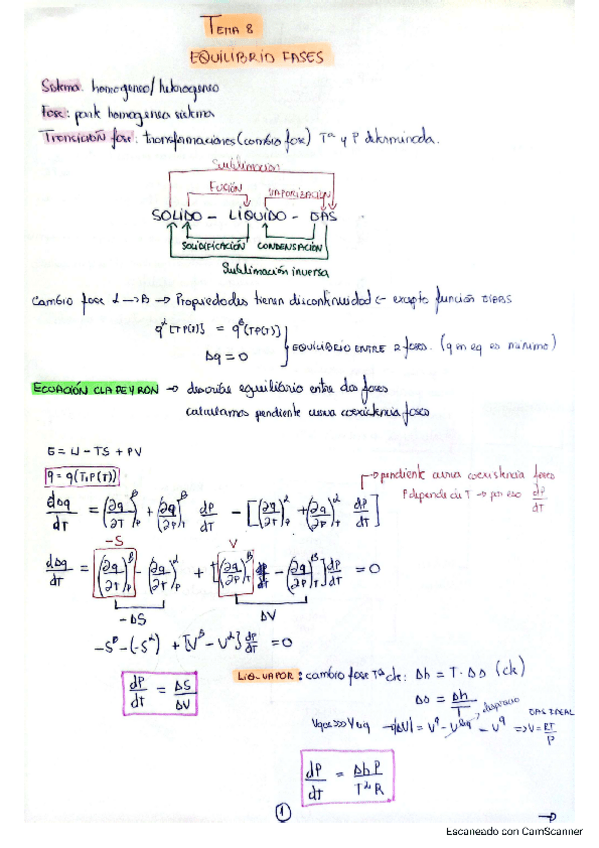 TEMA 8
EQUILIBRIO FASES
Sistema: homogeneo/heterogeneo
Fase: parte homogenea sistema
Transición fase: transformaciones (cambio fase) Tª y P determinada.
Sublimación
FUSIÓN VAPORIZACIÓN
SOLIDO - LÍQUIDO - GAS
SOLIDIFICACIÓN CONDENSACIÓN
Sublimación inversa
Cambio fase α → β → Propiedades tienen discontinuidad ← excepto función GIBBS
g^α [T P(T)] = g^β [T P(T)]
Δg = 0
EQUILIBRIO ENTRE 2 fases. (g en eq es mínimo)
ECUACIÓN CLAPEYRON → describe equilibrio entre dos fases
calculamos pendiente curva coexistencia fases
G = U - TS + PV
g = g(T,P(T))
→ pendiente curva coexistencia fases
P depende de T → por eso dP/dT
dΔg/dT = (∂g/∂T)_P^β + (∂g/∂P)_T^β dP/dT - [(∂g/∂T)_P^α + (∂g/∂P)_T^α dP/dT]
-S V
dΔg/dT = (∂g/∂T)_P^β - (∂g/∂T)_P^α + [(∂g/∂P)_T^β - (∂g/∂P)_T^β] dP/dT = 0
-ΔS ΔV
-S^β - (-S^α) + [V^β - V^α] dP/dT = 0
dP/dt = ΔS/ΔV
LIQ-VAPOR: cambio fase Tª ck: Δh = T · Δs (ck)
Δs = Δh/T
Vgas >>> Vliq → |ΔV| = V^g - V^liq - V^g ⇒ V = RT/P
desprecio
GAS IDEAL
dP/dt = Δh P/T² R
1
Escaneado con CamScanner